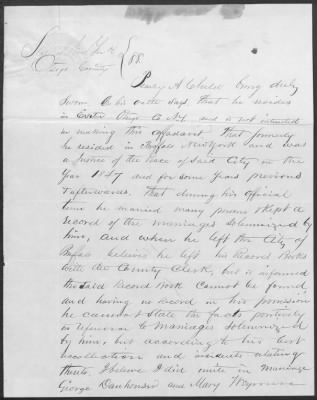 State of New York } SS.
Otsego County
A Childs being duly
sworn on his oathe says, that he resides
in Exeter Otsego Co N.Y. and is not interested
in making this affadavit That formerly
he resided in Buffalo New York and was
a Justice of the Peace of Said City in the
Year 1847 and for some years previous
& afterwards. That during his official
time he married many persons & kept a
record of the marriages solemnized by
him, and when he left the City of
Buffalo believes he left his Record Books
with the County Clerk, but is informed
the said Record Book cannot be found
and having no record in his possession
he cannot state the facts positively
in reference to Marriages solemnized
by him, but according to his best
recollection and incidents relating
thereto, I believe I did unite in Marriage
George and Mary